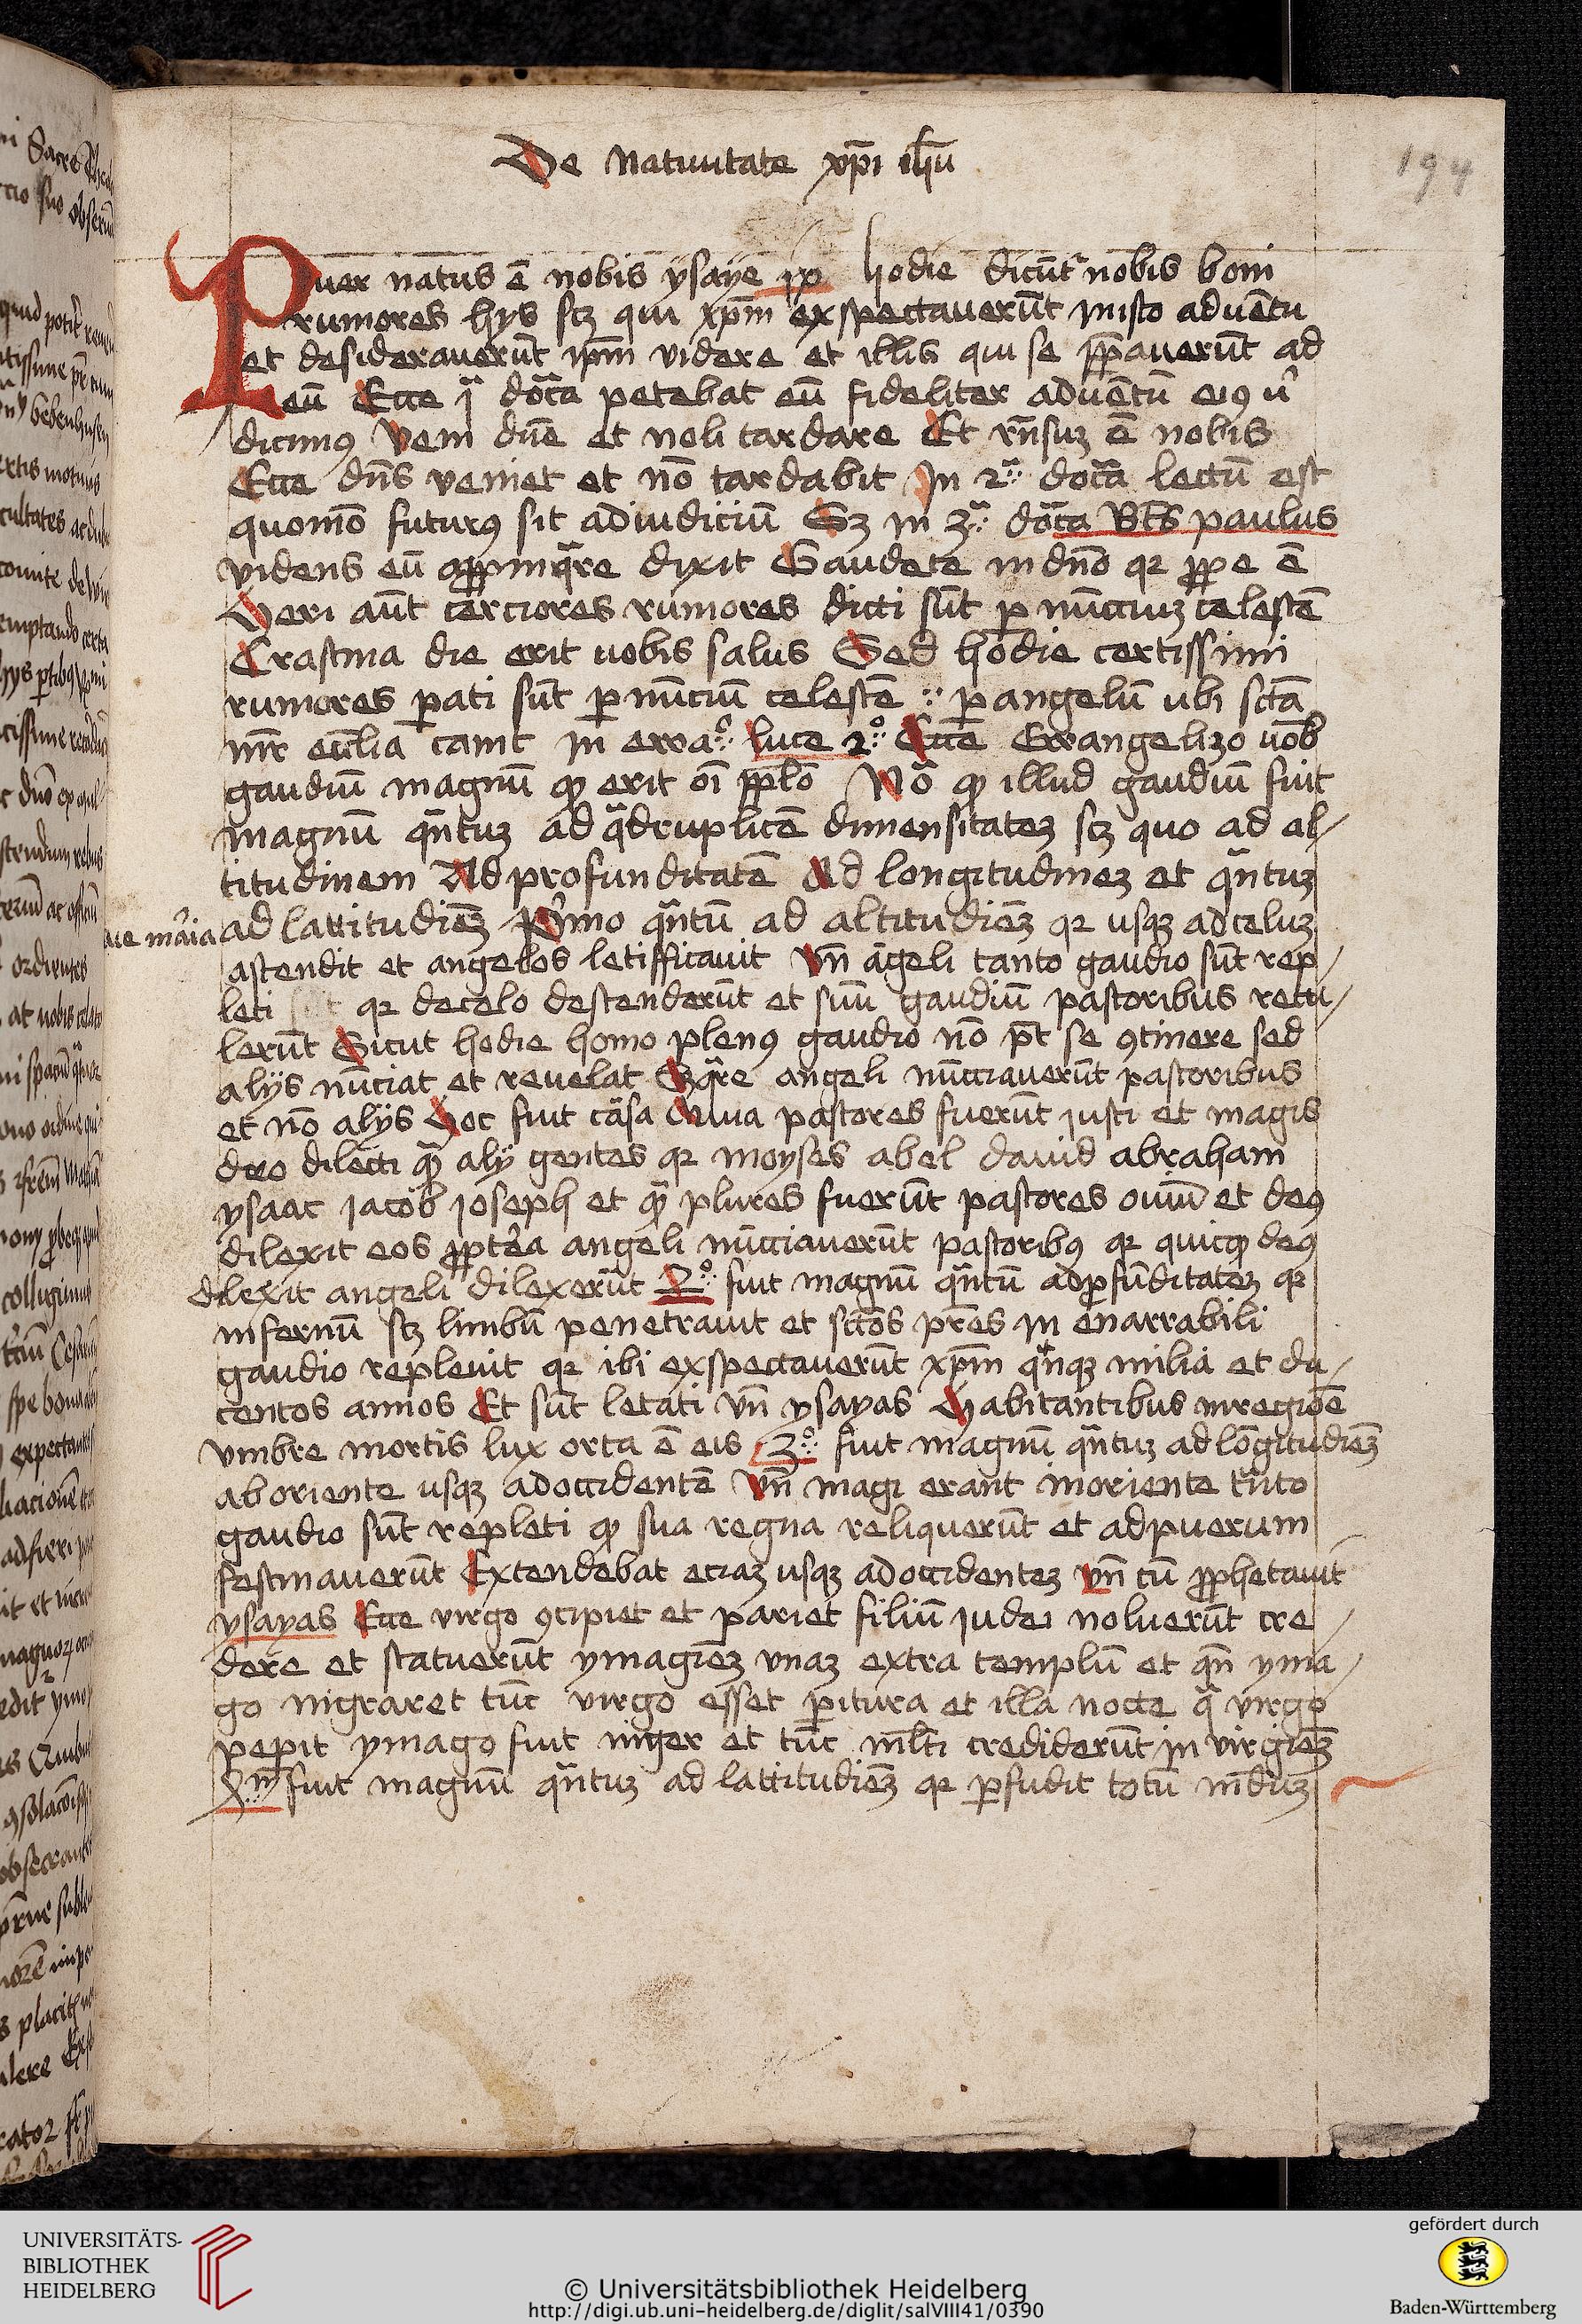 De Natiuitate xp̄i ih̄u
194
Puer natus ē nobis ysaye ix hodie dicūt nobis boni
rumores hys scz qui xpm̄ exspectauerūt in isto aduētu
et desiderauerūt ipm̄ videre et illis qui se p̄pauerūt ad
eū Ecce dōca petebat eū fideliter aduētū eiꝰ
dicimꝰ Veni dn̄e et noli tardare Et rn̄suꝫ ē nobis
Ecce dn̄s veniet et nō tardabit In 2ª dōca lectū est
quomō futurꝰ sit ad iudiciū Sꝫ in 3ª dōca Bt̄s paulus
videns eū app̄inqͣre dixit Gaudete in dn̄o qꝛ ꝓpe ē
Heri aūt cerciores rumores dicti sūt p nūcciuꝫ celestē
Crastina die erit vobis salus Sed hodie certissimi
rumores p̄ati sūt p nūciū celestē p angelū vbi sctā
mr̄ eccl̄ia canit in ewaº luce 2º Ecce Ewangelizo vob̄
gaudiū magnū ꝙ erit oī pp̄lo Nō ꝙ illud gaudiū fuit
magnū qͣntuꝫ ad qͣdruplicē dimensitateꝫ scꝫ quo ad al/
titudinem Ad profunditatē Ad longitudineꝫ et qͣntuꝫ
aue mͬia ad latitudīeꝫ Pͥmo qͣntū ad altitudīeꝫ qꝛ usqꝫ ad celuꝫ
ascendit et angelos letifficauit Vn̄ āgeli tanto gaudio sūt rep/
leti qꝛ de celo descenderūt et suū gaudiū pastoribus retu/
lerūt Sicut hodie homo plenꝰ gaudio nō p̄t se ꝯtinere sed
alijs nūciat et reuelat Sꝫ qͣre angeli nūcciauerūt pastoribus
et nō alijs Hoc fuit cāsa Quia pastores fuerūt iusti et magis
deo dilecti qͣ alij gentes qꝛ moyses abel dauid abraham
ysaac jacob joseph et qͣ plures fuerūt pastores ouiū et deꝰ
dilexit eos ꝓpterea angeli nūcciauerūt pastoribꝰ qꝛ quicqͥ deꝰ
dilexit angeli dilexerūt 2º fuit magnū qͣntū ad ꝓfūditateꝫ qꝛ
infernū scꝫ limbū penetrauit et sctōs pr̄es in enarrabili
gaudio repleuit qꝛ ibi exspectauerūt xpm̄ qͥnqꝫ milia et du/
centos annos Et sūt letati vn̄ ysayas Habitantibus in regiōe
vmbre mortis lux orta ē eis 3º fuit magnū qͣntuꝫ ad lōgitudīeꝫ
ab oriente usqꝫ ad occidentē Vn̄ magi erant in oriente tāto
gaudio sūt repleti ꝙ sua regna reliquerūt et ad puerum
festinauerūt Extendebat eciaꝫ usqꝫ ad occidenteꝫ vn̄ cū ꝓphetauit
ysayas Ecce virgo ꝯcipiet et pariet filiū judei noluerūt cre/
dere et statuerūt ymagīeꝫ vnaꝫ extra templū et qn̄ yma/
go nigraret tūc virgo esset paritura et illa nocte qͣ virgo
peperit ymago fuit niger et tūc ml̄ti crediderūt in virgīeꝫ
fuit magnū qͣntuꝫ ad latitudīeꝫ qꝛ pfudit totū mūduꝫ
UNIVERSITÄTS-
BIBLIOTHEK
HEIDELBERG
© Universitätsbibliothek Heidelberg
http://digi.ub.uni-heidelberg.de/diglit/salVIII41/0390
gefördert durch
Baden-Württemberg